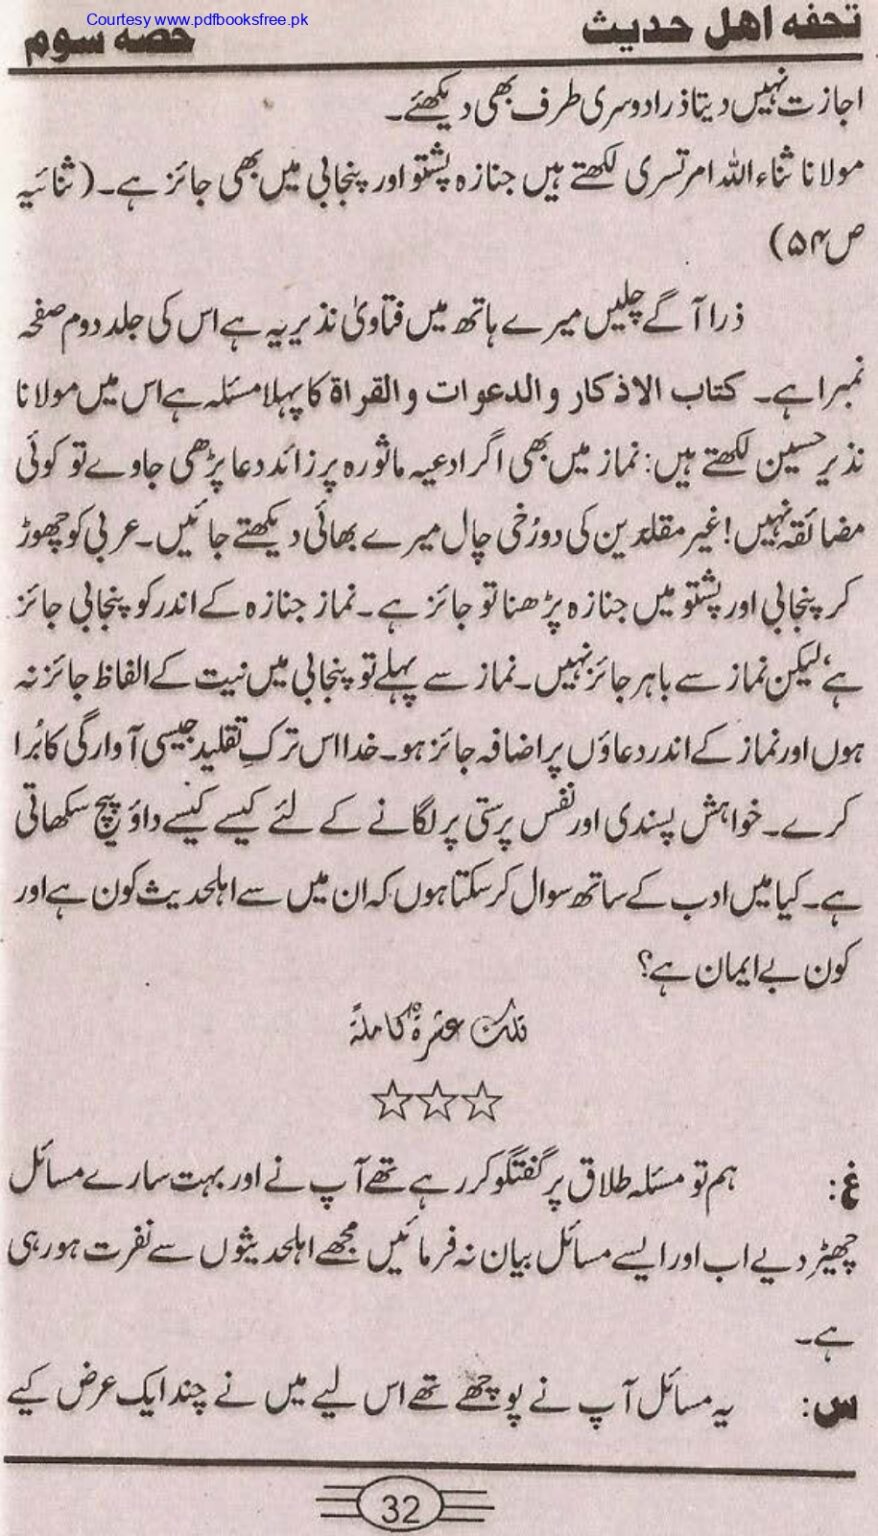 Courtesy www.pdfbooksfree.pk
تحفہ اهل حدیث
حصہ سوم
اجازت نہیں دیتا ذرا دوسری طرف بھی دیکھئے۔
مولانا ثناء اللہ امرتسری لکھتے ہیں جنازہ پشتو اور پنجابی میں بھی جائز ہے۔ (ثنائیہ
ص۵۴)
ذرا آگے چلیں میرے ہاتھ میں فتاویٰ نذیریہ ہے اس کی جلد دوم صفحہ
نمبر۱ ہے۔ کتاب الاذکار والدعوات والقراۃ کا پہلا مسئلہ ہے اس میں مولانا
نذیر حسین لکھتے ہیں: نماز میں بھی اگر ادعیہ ماثورہ پر زائد دعا پڑھی جاوے تو کوئی
مضائقہ نہیں! غیر مقلدین کی دورُخی چال میرے بھائی دیکھتے جائیں۔ عربی کو چھوڑ
کر پنجابی اور پشتو میں جنازہ پڑھنا تو جائز ہے۔ نماز جنازہ کے اندر کو پنجابی جائز
ہے، لیکن نماز سے باہر جائز نہیں۔ نماز سے پہلے تو پنجابی میں نیت کے الفاظ جائز نہ
ہوں اور نماز کے اندر دعاؤں پر اضافہ جائز ہو۔ خدا اس ترکِ تقلید جیسی آوارگی کا بُرا
کرے۔ خواہش پسندی اور نفس پرستی پر لگانے کے لئے کیسے کیسے داؤ پیچ سکھاتی
ہے۔ کیا میں ادب کے ساتھ سوال کر سکتا ہوں کہ ان میں سے اہلحدیث کون ہے اور
کون بے ایمان ہے؟
تلک عشرۃ کاملۃ
☆☆☆
غ: ہم تو مسئلہ طلاق پر گفتگو کر رہے تھے آپ نے اور بہت سارے مسائل
چھیڑ دیے اب اور ایسے مسائل بیان نہ فرمائیں مجھے اہلحدیثوں سے نفرت ہو رہی
ہے۔
س: یہ مسائل آپ نے پوچھے تھے اس لیے میں نے چند ایک عرض کیے
32